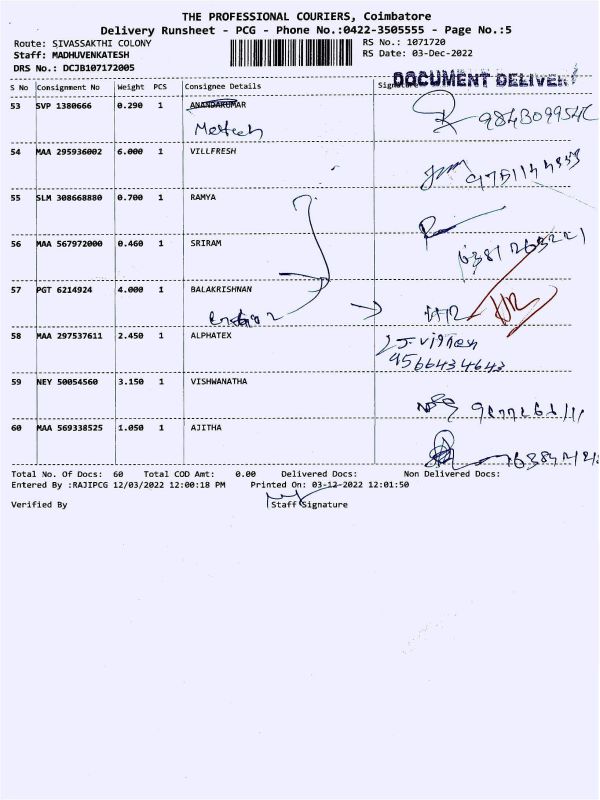 THE PROFESSIONAL COURIERS, Coimbatore
Delivery Runsheet - PCG - Phone No.:0422-3505555 - Page No.:5
Route: SIVASSAKTHI COLONY RS No.: 1071720
Staff: MADHUVENKATESH RS Date: 03-Dec-2022
DRS No.: DCJB107172005
DOCUMENT DELIVERY
S No Consignment No Weight PCS Consignee Details Signature
53 SVP 1380666 0.290 1 ANANDAKUMAR
54 MAA 295936002 6.000 1 VILLFRESH
55 SLM 308668880 0.700 1 RAMYA
56 MAA 567972000 0.460 1 SRIRAM
57 PGT 6214924 4.000 1 BALAKRISHNAN
58 MAA 297537611 2.450 1 ALPHATEX
9566434643
59 NEY 50054560 3.150 1 VISHWANATHA
60 MAA 569338525 1.050 1 AJITHA
Total No. Of Docs: 60 Total COD Amt: 0.00 Delivered Docs: Non Delivered Docs:
Entered By :RAJIPCG 12/03/2022 12:00:18 PM Printed On: 03-12-2022 12:01:50
Verified By Staff Signature